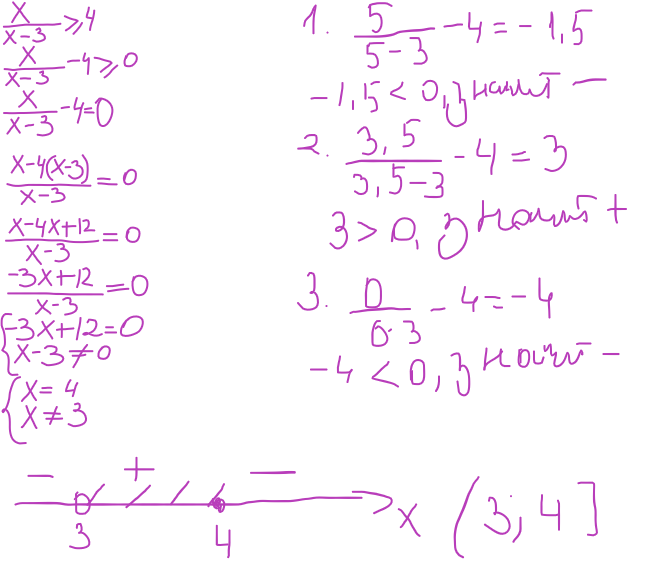 x/(x-3) ⩾ 4
x/(x-3) - 4 ⩾ 0
x/(x-3) - 4 = 0
(x-4(x-3))/(x-3) = 0
(x-4x+12)/(x-3) = 0
(-3x+12)/(x-3) = 0
{-3x+12=0
x-3≠0
{x=4
x≠3
1. 5/(5-3) - 4 = -1,5
-1,5 < 0, значит -
2. 3,5/(3,5-3) - 4 = 3
3 > 0, значит +
3. 0/(0-3) - 4 = -4
-4 < 0, значит -
- + -
3 4 x (3; 4]